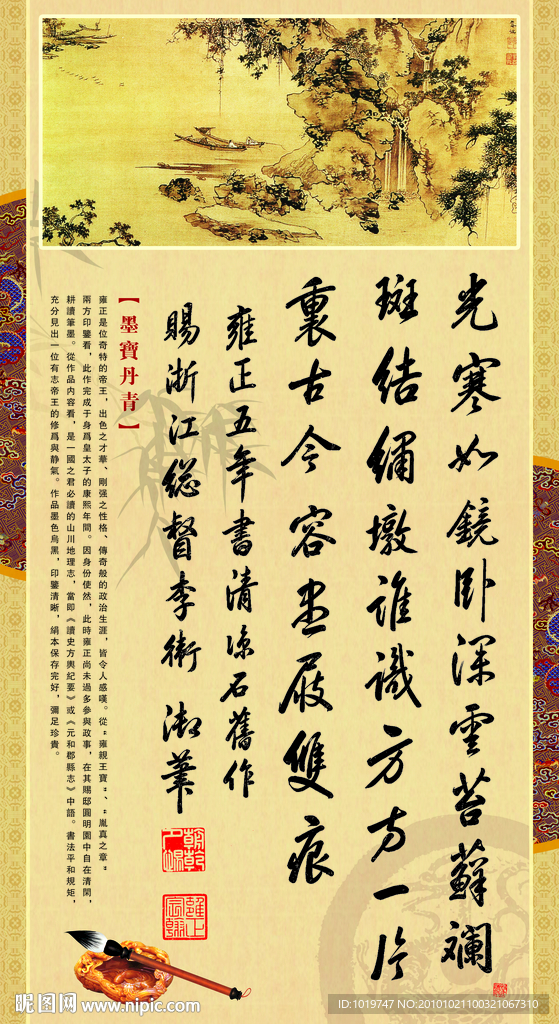 光寒如鏡卧深雲苔蘚斕
斑結繡墩誰識方方一片
裏古今容盡屐雙痕
雍正五年書清涼石舊作
賜浙江總督李衛 御筆
【墨寶丹青】
雍正是位奇特的帝王,出色之才華、剛强之性格、傳奇般的政治生涯,皆令人感嘆。從“雍親王寶”、“胤真之章”
兩方印鑒看,此作完成于身爲皇太子的康熙年間。因身份使然,此時雍正尚未過多參與政事,在其賜邸圓明園中自在清閑,
耕讀筆墨。從作品内容看,是一國之君必讀的山川地理志,當即《讀史方輿紀要》或《元和郡縣志》中語。書法平和規矩,
充分見出一位有志帝王的修爲與静氣。作品墨色烏黑,印鑒清晰,絹本保存完好,彌足珍貴。
昵图网 www.nipic.com
ID:1019747 NO:20101021100321067310